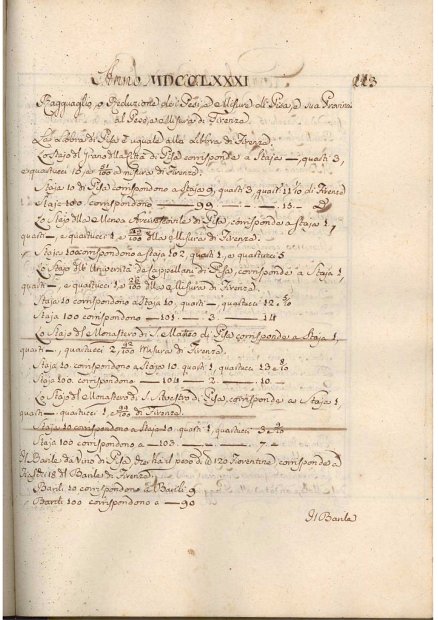 Anno MDCCLXXXI 113
Ragguaglio, o Reduzione de' Pesi, e Misure di Pisa, e sua Provincia
al Peso, e Misura di Firenze.
La Libbra di Pisa è uguale alla Libbra di Firenze.
Lo Stajo del grano della Città di Pisa corrisponde a Staja —, quarti 3,
e quartucci 15 100 a misura di Firenze.
Staja 10 di Pisa corrispondono a Staja 9, quarti 3, quart. di Firenze
Staja 100 corrispondono — 99 — 15 —
Lo Stajo della Mensa Arcivescovile di Pisa, corrisponde a Staja 1,
quarti —, e quartucci 1, e 100 della Misura di Firenze.
Staja 100 corrispondono a Staja 102, quarti 1, e quartucci 5
Lo Stajo dell' Università de' Cappellani di Pisa, corrisponde a Staja 1,
quarti —, e quartucci 1, e 100 della Misura di Firenze.
Staja 10 corrispondono a Staja 10, quarti —, quartucci 12.
Staja 100 corrispondono — 101 — 3 — 14
Lo Stajo del Monastero di S. Matteo di Pisa corrisponde a Staja 1,
quarti —, quartucci 2, 100 misura di Firenze.
Staja 10 corrispondono a Staja 10, quarti 1, quartucci 13
Staja 100 corrispondono — 104 — 2 — 10 —
Lo Stajo del Monastero di S. Silvestro di Pisa, corrisponde a Staja 1,
quarti —, quartucci 1, e 100 di Firenze.
Staja 10 corrispondono a Staja 10, quarti 1, quartucci
Staja 100 corrispondono a — 103 — 7 —
Il Barile da Vino di Pisa, che ha il peso di 120 Fiorentine, corrisponde a
18 del Barile di Firenze
Barili 10 corrispondono a Barili 9
Barili 100 corrispondono a — 90
Il Barile